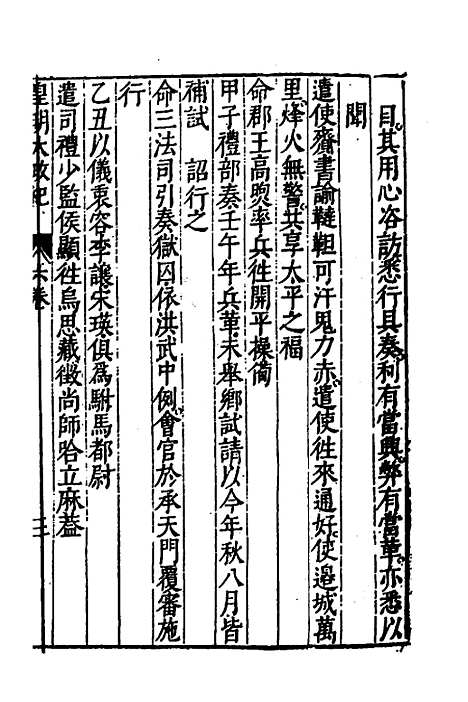 目其用心咨訪悉行具奏利有當興弊有當革亦悉以
聞
遣使齎書諭韃靼可汗鬼力赤遣使徃來通好使邉城萬
里烽火無警共享太平之福
命郡王高煦率兵徃開平操俻
甲子禮部奏壬午年兵革未舉鄉試請以今年秋八月皆
補試 詔行之
命三法司引奏獄囚依洪武中例會官於承天門覆審施
行
乙丑以儀衷容李讓宋瑛俱為駙馬都尉
遣司禮少監侯顯徃烏思藏徵尚師哈立麻葢
皇朝大政紀 六卷 三